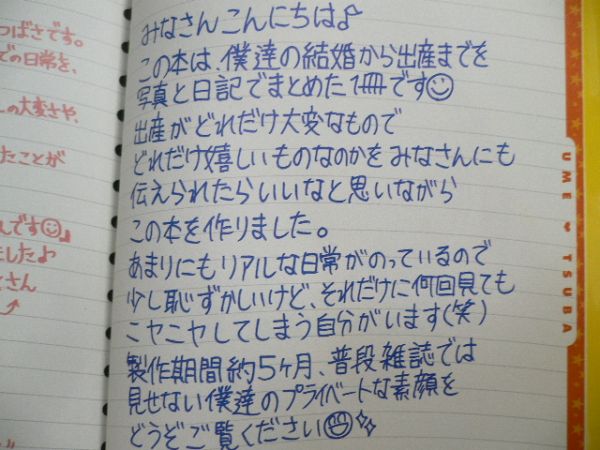 みなさんこんにちは♪
この本は、僕達の結婚から出産までを
写真と日記でまとめた1冊です☺
出産がどれだけ大変なもので
どれだけ嬉しいものなのかをみなさんにも
伝えられたらいいなと思いながら
この本を作りました。
あまりにもリアルな日常がのっているので
少し恥ずかしいけど、それだけに何回見ても
ニヤニヤしてしまう自分がいます(笑)
製作期間約5ヶ月、普段雑誌では
見せない僕達のプライベートな素顔を
どうぞご覧ください😄✨
つばさです。
での日常を、
しの大変さや、
たことが
んです☺♪
ました♪
さん
UME ♥ TSUBA